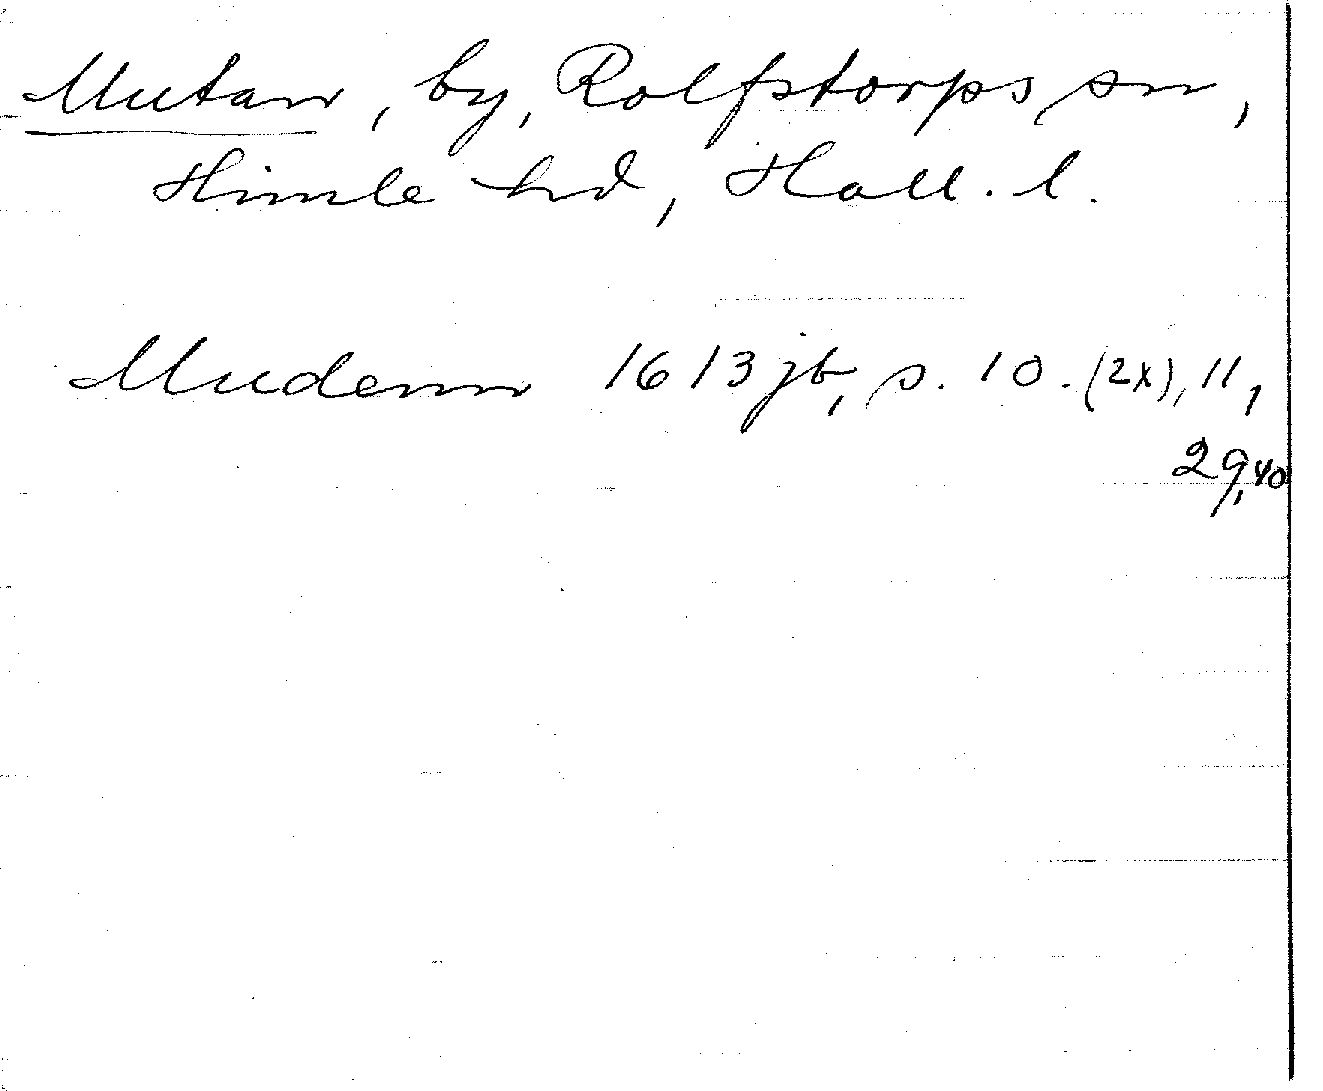 Mutan, by, Rolfstorps sn,
Himle hd, Hall. l.
Mudenn 1613 jb, s. 10. (2x), 11,
29, 40